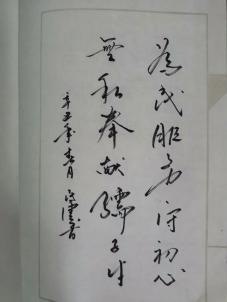 为民服务守初心
无私奉献孺子牛
辛丑年春月